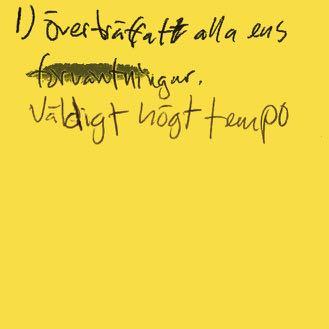 1) Överträffatt alla ens
förväntningar.
Väldigt högt tempo